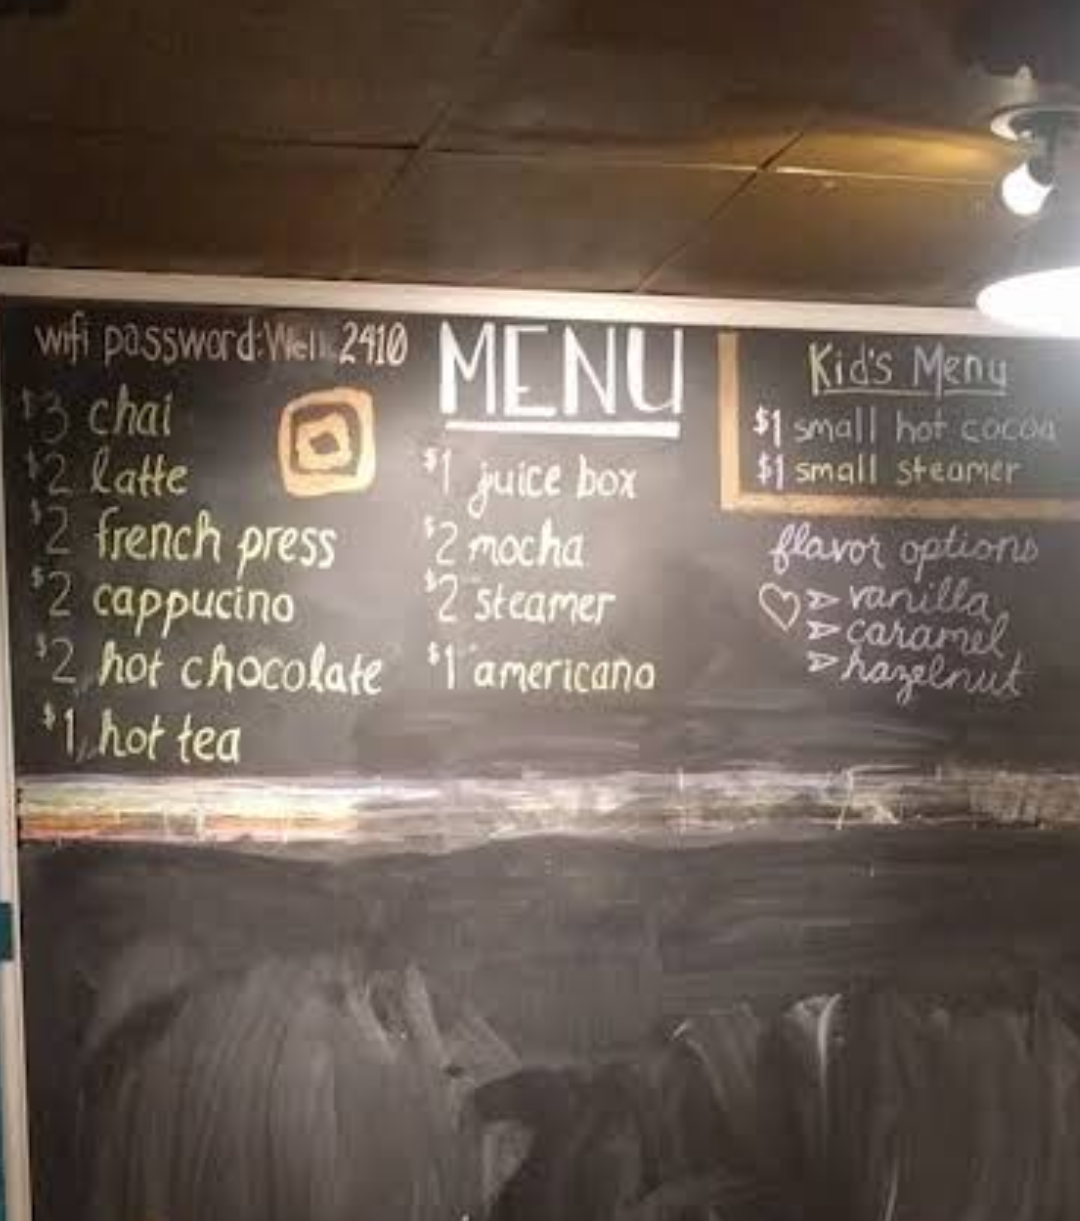 wifi password:Well 2410
$3 chai
$2 latte
$2 french press
$2 cappucino
$2 hot chocolate
$1 hot tea
MENU
$1 juice box
$2 mocha
$2 steamer
$1 americano
Kid's Menu
$1 small hot cocoa
$1 small steamer
flavor options
vanilla
caramel
hazelnut